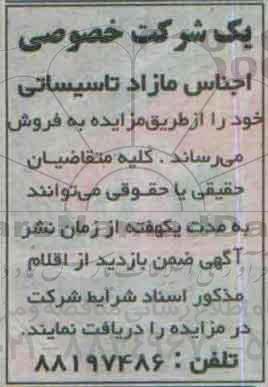 یک شرکت خصوصی
اجناس مازاد تاسیساتی
خود را ازطریق‌مزایده به فروش
می‌رساند . کلیه متقاضیان
حقیقی یا حقوقی می‌توانند
به مدت یکهفته از زمان نشر
آگهی ضمن بازدید از اقلام
مذکور اسناد شرایط شرکت
در مزایده را دریافت نمایند.
تلفن : ۸۸۱۹۷۴۸۶